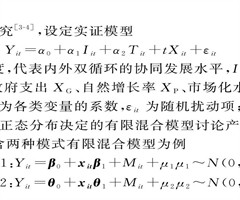 究[3-4],设定实证模型
Y_it=α_0+α_1 I_it+α_2 T_it+tX_it+ε_it
度,代表内外双循环的协同发展水平,I
政府支出 X_G、自然增长率 X_P、市场化水
为各类变量的系数,ε_it 为随机扰动项;
正态分布决定的有限混合模型讨论产
含两种模式有限混合模型为例
1:Y_it=β_0+x_it β_1+M_it+μ_1 μ_1~N(0,
2:Y_it=θ_0+x_it θ_1+M_it+μ_2 μ_2~N(0,